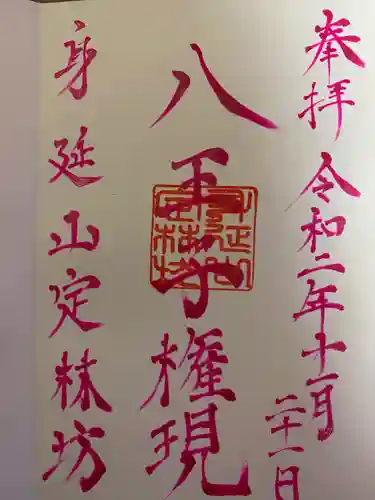 奉拝 令和二年十一月
二十一日
八王子権現
身延山定林坊
身延山定林坊